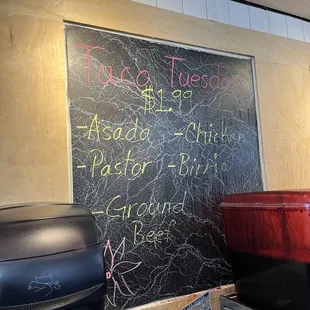 Taco Tuesday
$1.99
-Asada -Chicken
-Pastor -Birria
-Ground
Beef